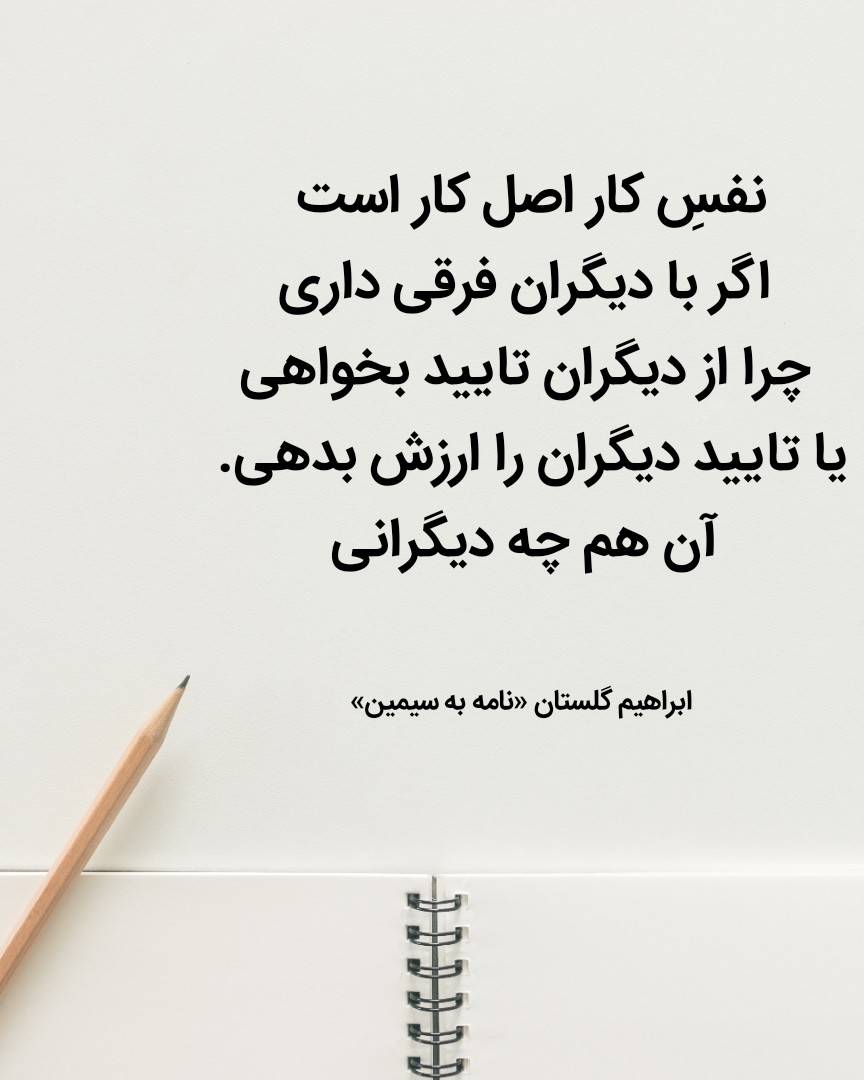 نفسِ کار اصل کار است
اگر با دیگران فرقی داری
چرا از دیگران تایید بخواهی
یا تایید دیگران را ارزش بدهی.
آن هم چه دیگرانی
ابراهیم گلستان «نامه به سیمین»